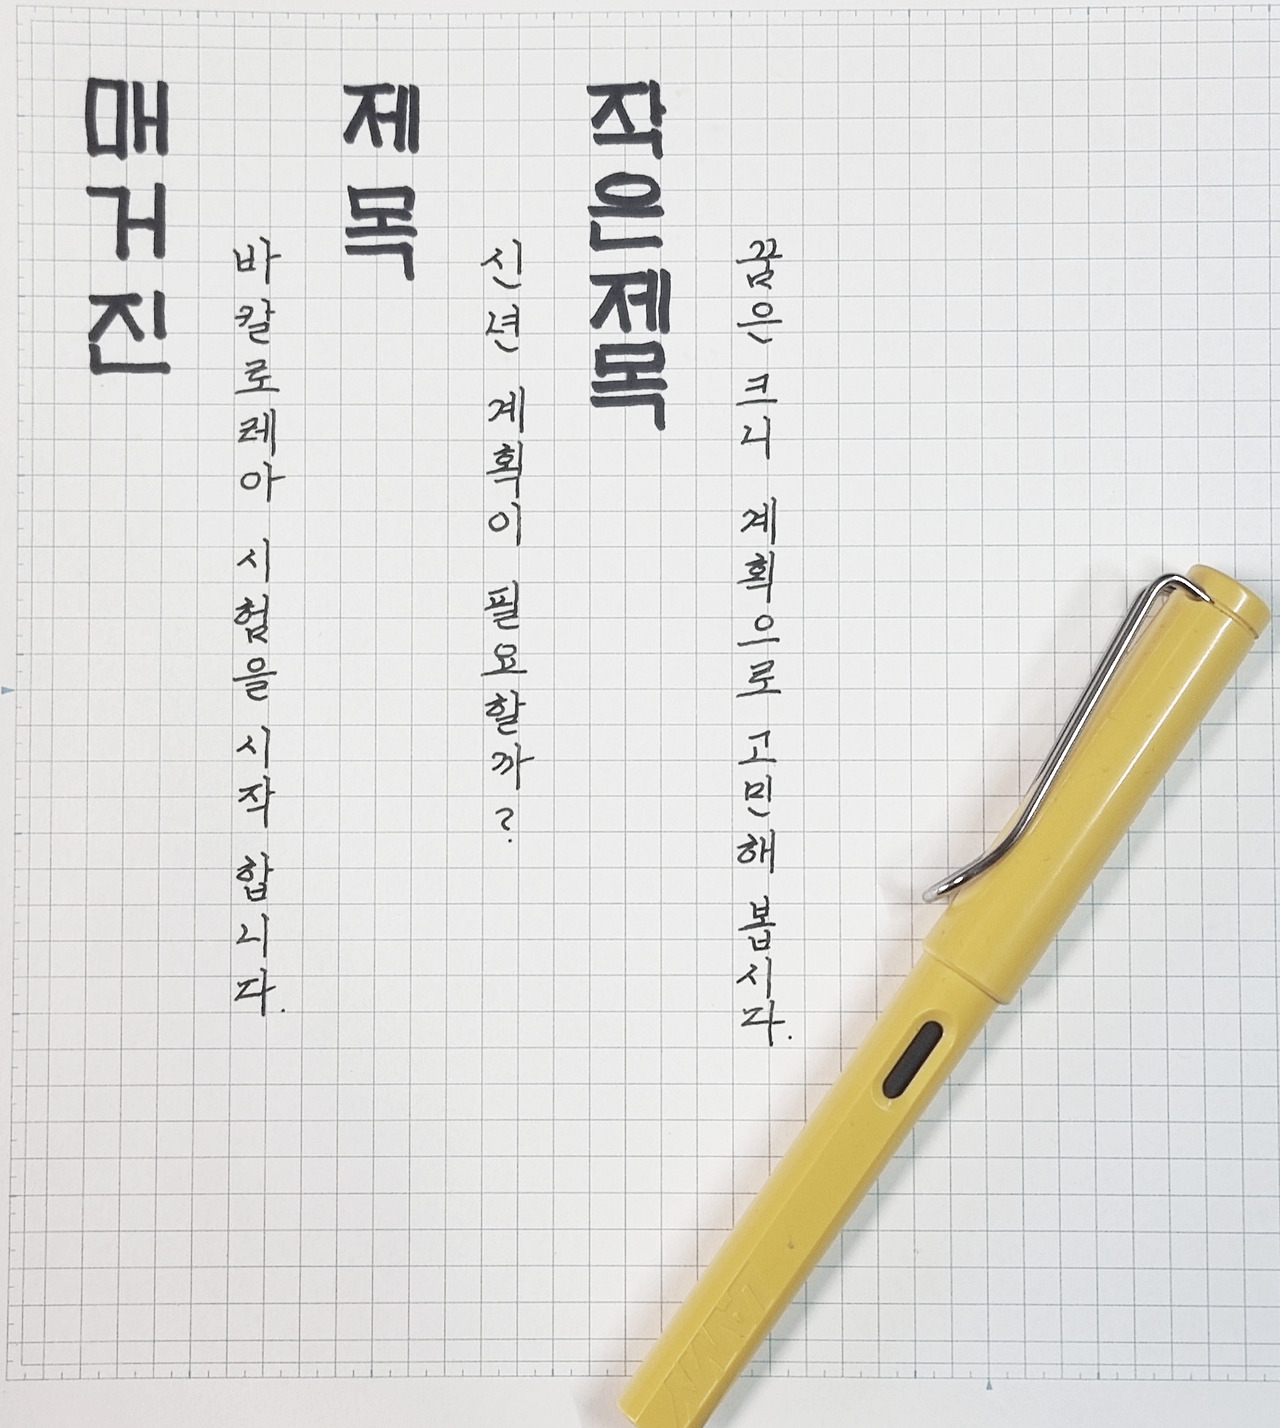 매거진
바칼로레아 시험을 시작 합니다.
제목
신년 계획이 필요할까?
작은제목
꿈은 크니 계획으로 고민해 봅시다.
LAMY